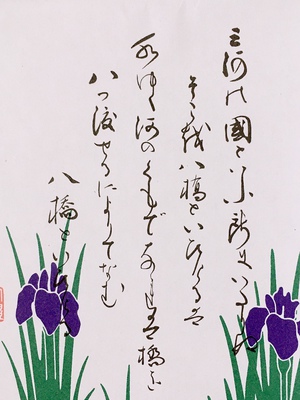 三河の國といふ所にいたりぬ
そこを八橋といひけるは
水ゆく河のくもでなれば橋を
八つ渡せるによりてなむ
八橋といひける